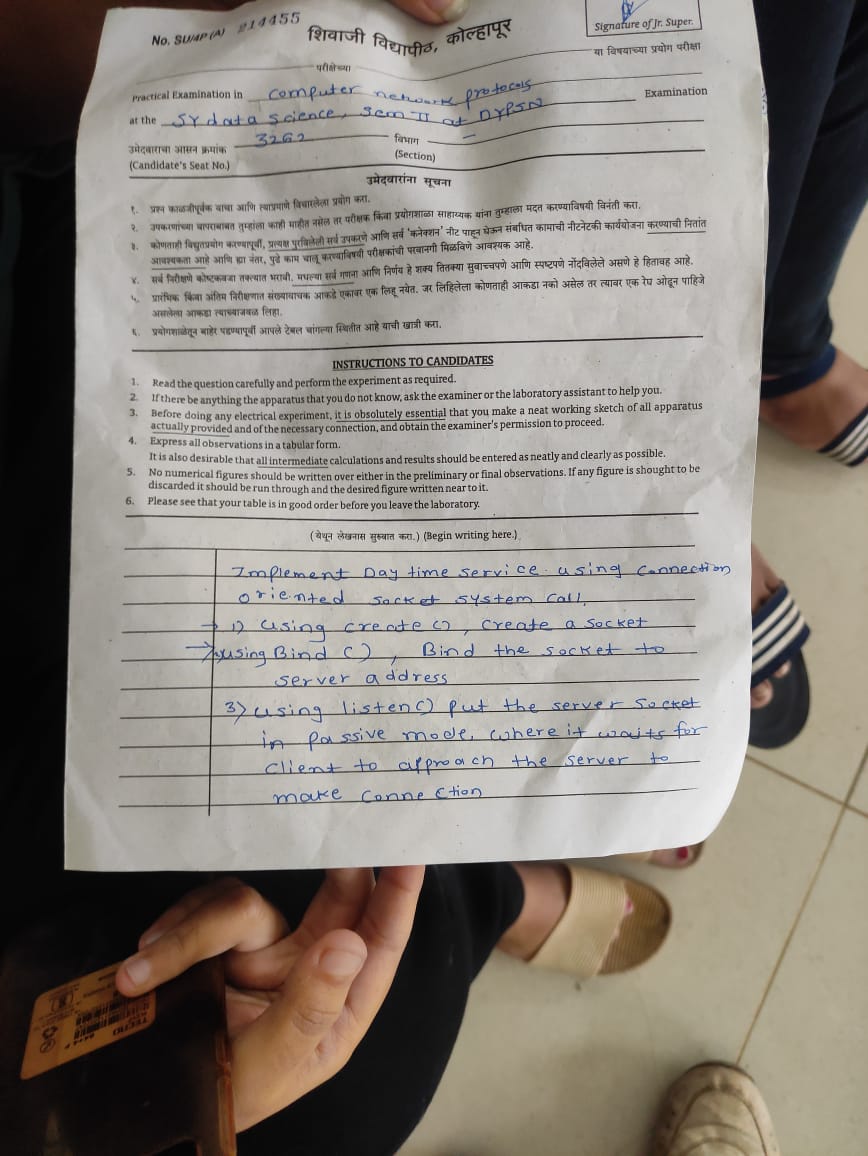 No. SU/4P (A) 214455
शिवाजी विद्यापीठ, कोल्हापूर
Signature of Jr. Super.
परीक्षेच्या
या विषयाच्या प्रयोग परीक्षा
Practical Examination in computer network protocols Examination
at the SY data science, sem II at DYPSN
उमेदवाराचा आसन क्रमांक 3262 विभाग –
(Candidate's Seat No.) (Section)
उमेदवारांना सूचना
१. प्रश्न काळजीपूर्वक वाचा आणि त्याप्रमाणे विचारलेला प्रयोग करा.
२. उपकरणांच्या वापराबाबत तुम्हांला काही माहीत नसेल तर परीक्षक किंवा प्रयोगशाळा साहाय्यक यांना तुम्हाला मदत करण्याविषयी विनंती करा.
३. कोणताही विद्युतप्रयोग करण्यापूर्वी, प्रत्यक्ष पुरविलेली सर्व उपकरणे आणि सर्व 'कनेक्शन' नीट पाहून घेऊन संबधित कामाची नीटनेटकी कार्ययोजना करण्याची नितांत
आवश्यकता आहे आणि ह्या नंतर, पुढे काम चालू करण्याविषयी परीक्षकांची परवानगी मिळविणे आवश्यक आहे.
४. सर्व निरीक्षणे कोष्टकवजा तक्त्यात भरावी. मधल्या सर्व गणना आणि निर्णय हे शक्य तितक्या सुवाच्यपणे आणि स्पष्टपणे नोंदविलेले असणे हे हितावह आहे.
५. प्रारंभिक किंवा अंतिम निरीक्षणात संख्यावाचक आकडे एकावर एक लिहू नयेत. जर लिहिलेला कोणताही आकडा नको असेल तर त्यावर एक रेघ ओढून पाहिजे
असलेला आकडा त्याच्याजवळ लिहा.
६. प्रयोगशाळेतून बाहेर पडण्यापूर्वी आपले टेबल चांगल्या स्थितीत आहे याची खात्री करा.
INSTRUCTIONS TO CANDIDATES
1. Read the question carefully and perform the experiment as required.
2. If there be anything the apparatus that you do not know, ask the examiner or the laboratory assistant to help you.
3. Before doing any electrical experiment, it is absolutely essential that you make a neat working sketch of all apparatus
actually provided and of the necessary connection, and obtain the examiner's permission to proceed.
4. Express all observations in a tabular form.
It is also desirable that all intermediate calculations and results should be entered as neatly and clearly as possible.
5. No numerical figures should be written over either in the preliminary or final observations. If any figure is shought to be
discarded it should be run through and the desired figure written near to it.
6. Please see that your table is in good order before you leave the laboratory.
(येथून लेखनास सुरुवात करा.) (Begin writing here.)
Implement Day time service using connection
oriented socket system call.
→ 1) using create(), create a socket
using Bind (), Bind the socket to
server address
3) using listen() put the server socket
in passive mode, where it waits for
client to approach the server to
make connection
TECNO